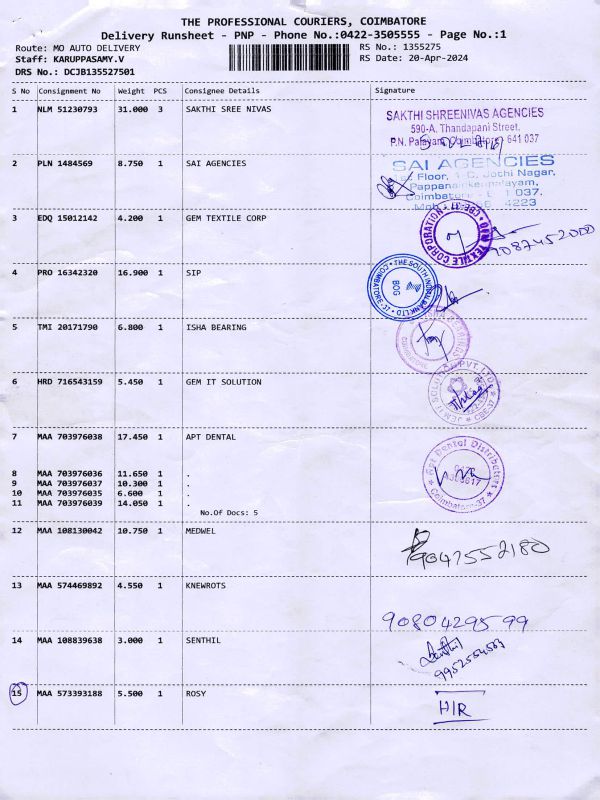 THE PROFESSIONAL COURIERS, COIMBATORE
Delivery Runsheet - PNP - Phone No.:0422-3505555 - Page No.:1
Route: MO AUTO DELIVERY
RS No.: 1355275
Staff: KARUPPASAMY.V
RS Date: 20-Apr-2024
DRS No.: DCJB135527501
S No Consignment No Weight PCS Consignee Details Signature
1 NLM 51230793 31.000 3 SAKTHI SREE NIVAS
SAKTHI SHREENIVAS AGENCIES
590-A, Thandapani Street,
P.N. Palayam, Coimbatore - 641 037
2 PLN 1484569 8.750 1 SAI AGENCIES
SAI AGENCIES
1st Floor, 1-C, Jothi Nagar,
Pappanaickenpalayam,
Coimbatore 037.
4223
3 EDQ 15012142 4.200 1 GEM TEXTILE CORP
GEM TEXTILE CORPORATION CBE-37
9087452000
4 PRO 16342320 16.900 1 SIP
THE SOUTH INDIAN BANK LTD COIMBATORE
BOG
5 TMI 20171790 6.800 1 ISHA BEARING
6 HRD 716543159 5.450 1 GEM IT SOLUTION
GEM IT SOLUTION PVT. LTD. CBE-37
7 MAA 703976038 17.450 1 APT DENTAL
Apt Dental Distributors
Coimbatore-37
8 MAA 703976036 11.650 1 .
9 MAA 703976037 10.300 1 .
10 MAA 703976035 6.600 1 .
11 MAA 703976039 14.050 1 .
No.Of Docs: 5
12 MAA 108130042 10.750 1 MEDWEL
9047552180
13 MAA 574469892 4.550 1 KNEWROTS
9080429599
14 MAA 108839638 3.000 1 SENTHIL
Senthil
9952554583
15 MAA 573393188 5.500 1 ROSY
H/R